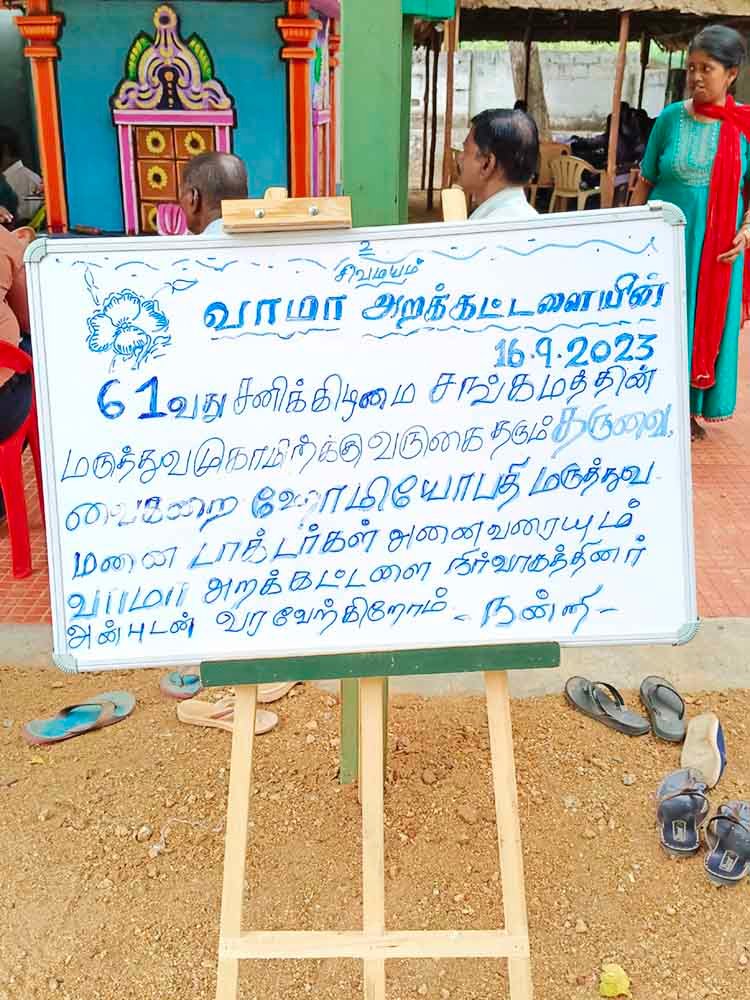 உ
சிவமயம்
வாமா அறக்கட்டளையின்
16.9.2023
61வது சனிக்கிழமை சங்கமத்தின்
மருத்துவமுகாமிற்க்கு வருகை தரும் தருவை,
வைகறை ஹோமியோபதி மருத்துவ
மனை டாக்டர்கள் அனைவரையும்
வாமா அறக்கட்டளை நிர்வாகத்தினர்
அன்புடன் வரவேற்கிறோம் - நன்றி -